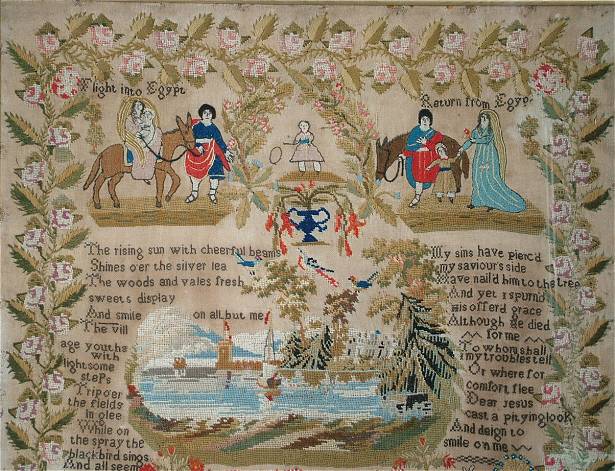 Flight into Egypt
Return from Egyp
The rising sun with cheerful beams
Shines o'er the silver lea
The woods and vales fresh
sweets display
And smile on all but me
The vill
age youths
with
lightsome
steps
Trip o'er
the fields
in glee
While on
the spray the
blackbird sings
And all seem
My sins have pierc'd
my saviour's side
Have nail'd him to the tree
And yet I spurn'd
his offer'd grace
Although he died
for me
To whom shall
I my troubles tell
Or where for
comfort flee
Dear Jesus
cast a pitying look
And deign to
smile on me